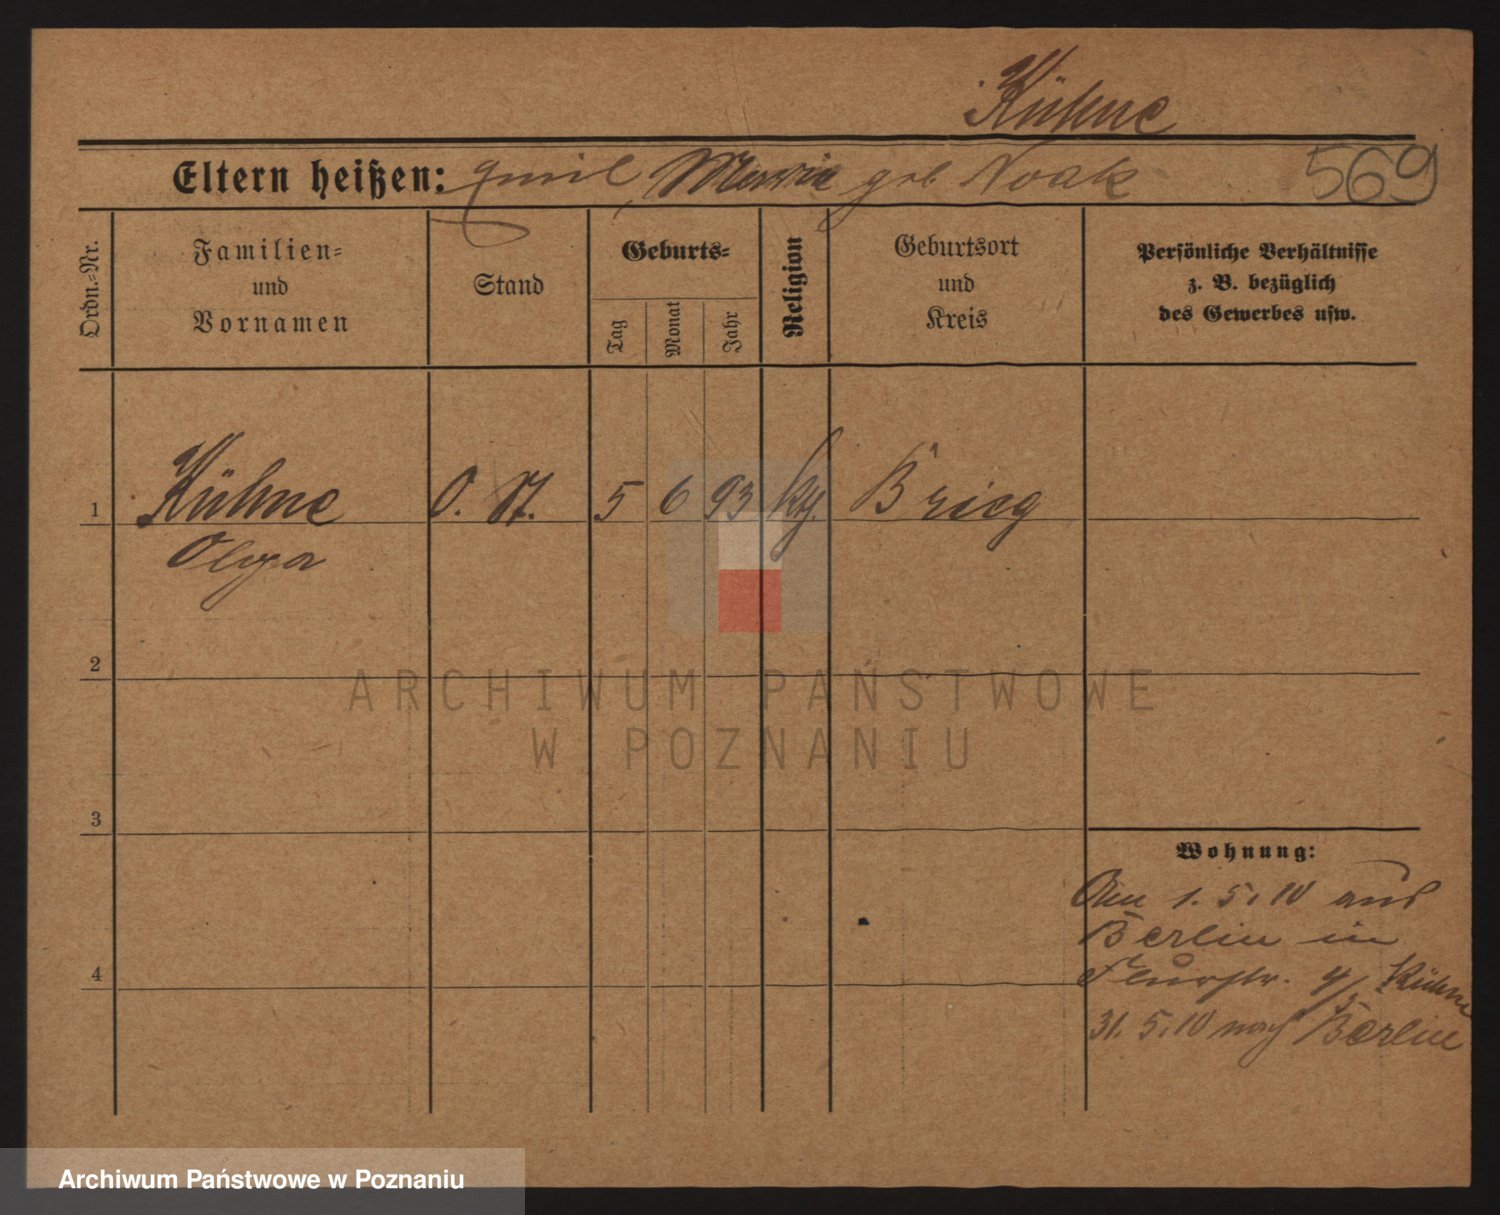 Kühne
Eltern heißen: Emil, Maria geb Noak 569
Ordn.-Nr.
Familien-
und
Vornamen
Stand
Geburts-
Tag
Monat
Jahr
Religion
Geburtsort
und
Kreis
Persönliche Verhältnisse
z. B. bezüglich
des Gewerbes usw.
1 Kühne O. St. 5 6 93 kth. Brieg
Olga
2
ARCHIWUM PAŃSTWOWE
W POZNANIU
3
Wohnung:
Am 1. 5. 10 aus
Berlin in
4 Flurstr. 4/ Kühne
31. 5. 10 nach Berlin
Archiwum Państwowe w Poznaniu